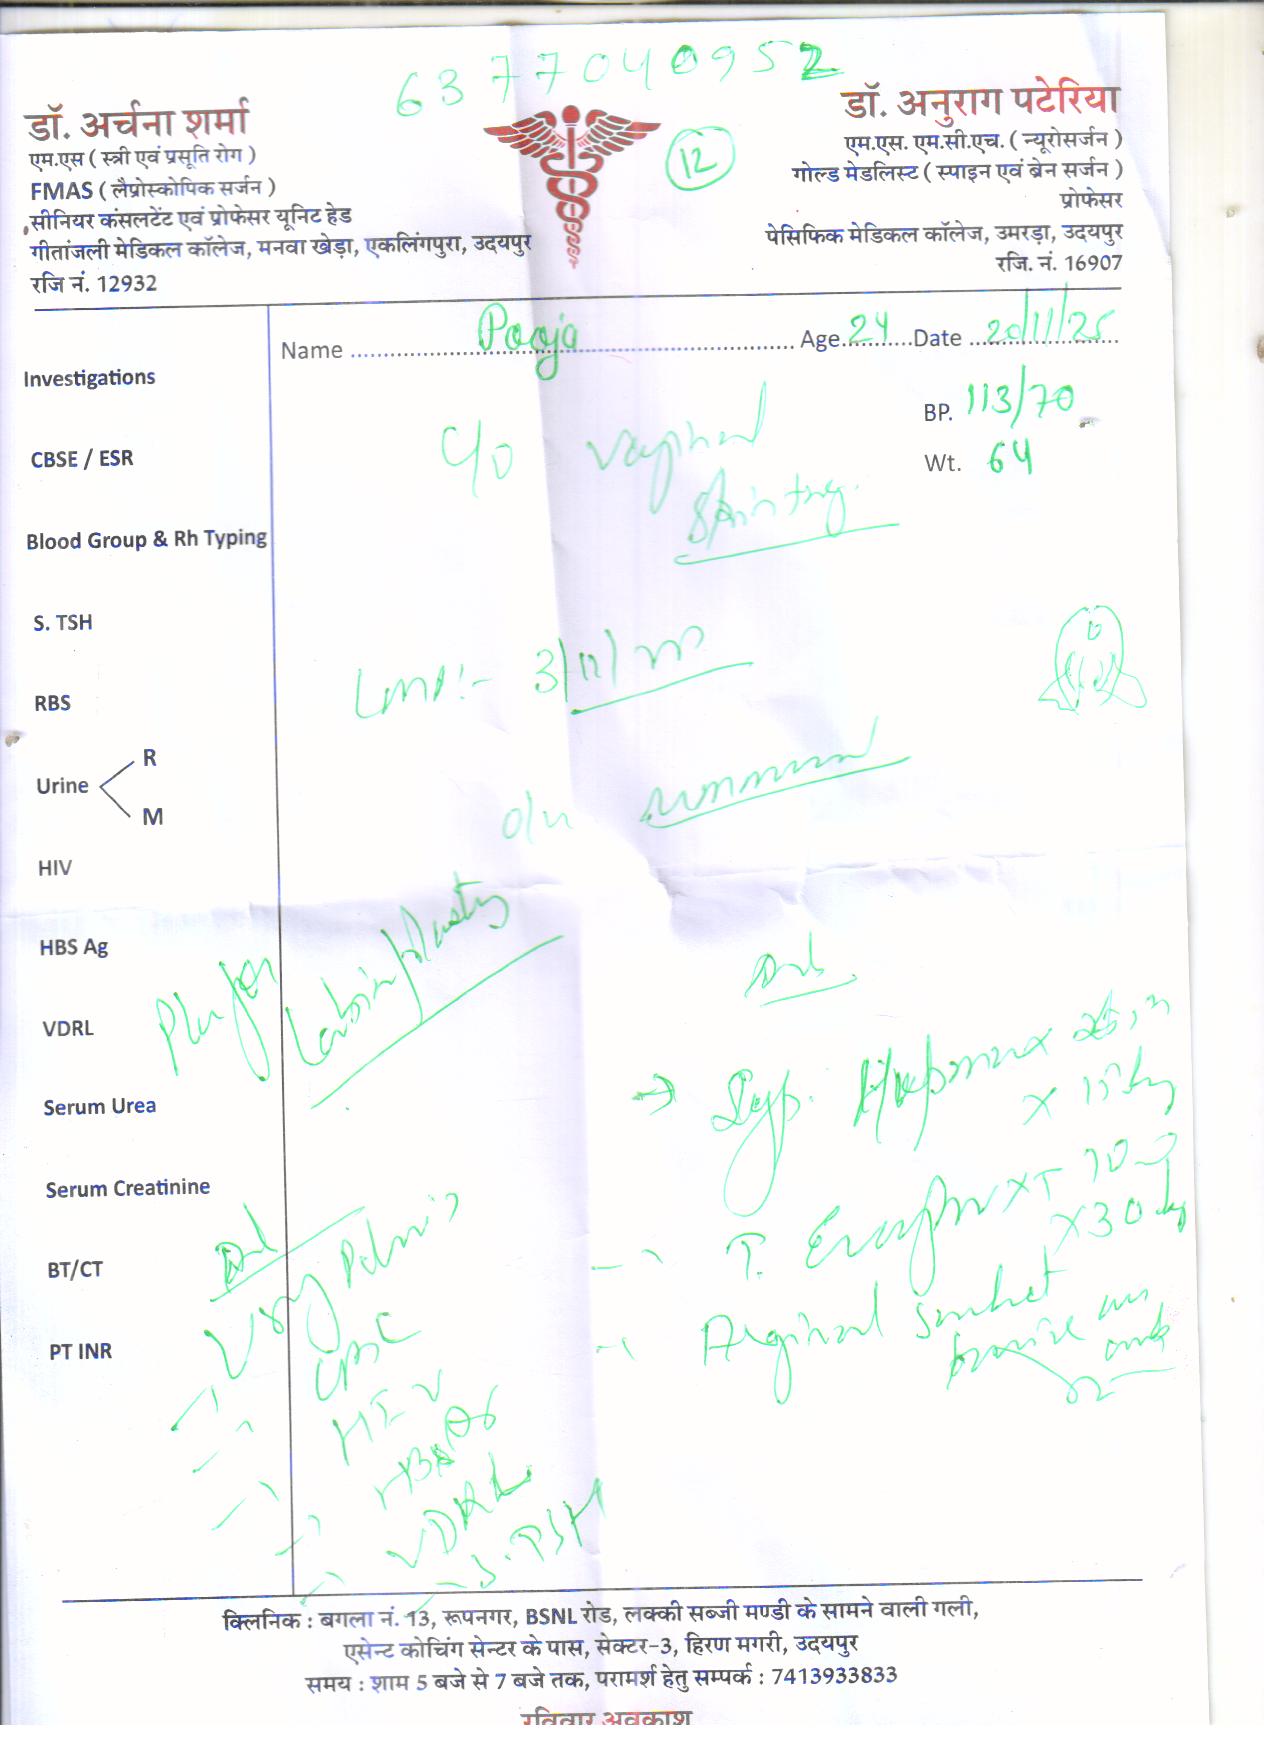 6377040952
डॉ. अर्चना शर्मा
एम.एस ( स्त्री एवं प्रसूति रोग )
FMAS ( लैप्रोस्कोपिक सर्जन )
सीनियर कंसलटेंट एवं प्रोफेसर यूनिट हेड
गीतांजली मेडिकल कॉलेज, मनवा खेड़ा, एकलिंगपुरा, उदयपुर
रजि नं. 12932
12
डॉ. अनुराग पटेरिया
एम.एस. एम.सी.एच. ( न्यूरोसर्जन )
गोल्ड मेडलिस्ट ( स्पाइन एवं ब्रेन सर्जन )
प्रोफेसर
पेसिफिक मेडिकल कॉलेज, उमरड़ा, उदयपुर
रजि. नं. 16907
Name Pooja Age 24 Date 20/11/25
BP. 113/70
Wt. 64
Investigations
CBSE / ESR
Blood Group & Rh Typing
S. TSH
RBS
Urine
R
M
HIV
HBS Ag
VDRL
Serum Urea
Serum Creatinine
BT/CT
PT INR
C/o
LMP:- 3/11/
Plan for
Labiaplasty
Adv
Syp.
x 15 day
T.
x 30 day
Adv
USG Pelvis
CBC
HIV
HBsAG
VDRL
S. TSH
क्लिनिक : बगला नं. 13, रूपनगर, BSNL रोड, लक्की सब्जी मण्डी के सामने वाली गली,
एसेन्ट कोचिंग सेन्टर के पास, सेक्टर-3, हिरण मगरी, उदयपुर
समय : शाम 5 बजे से 7 बजे तक, परामर्श हेतु सम्पर्क : 7413933833
रविवार अवकाश